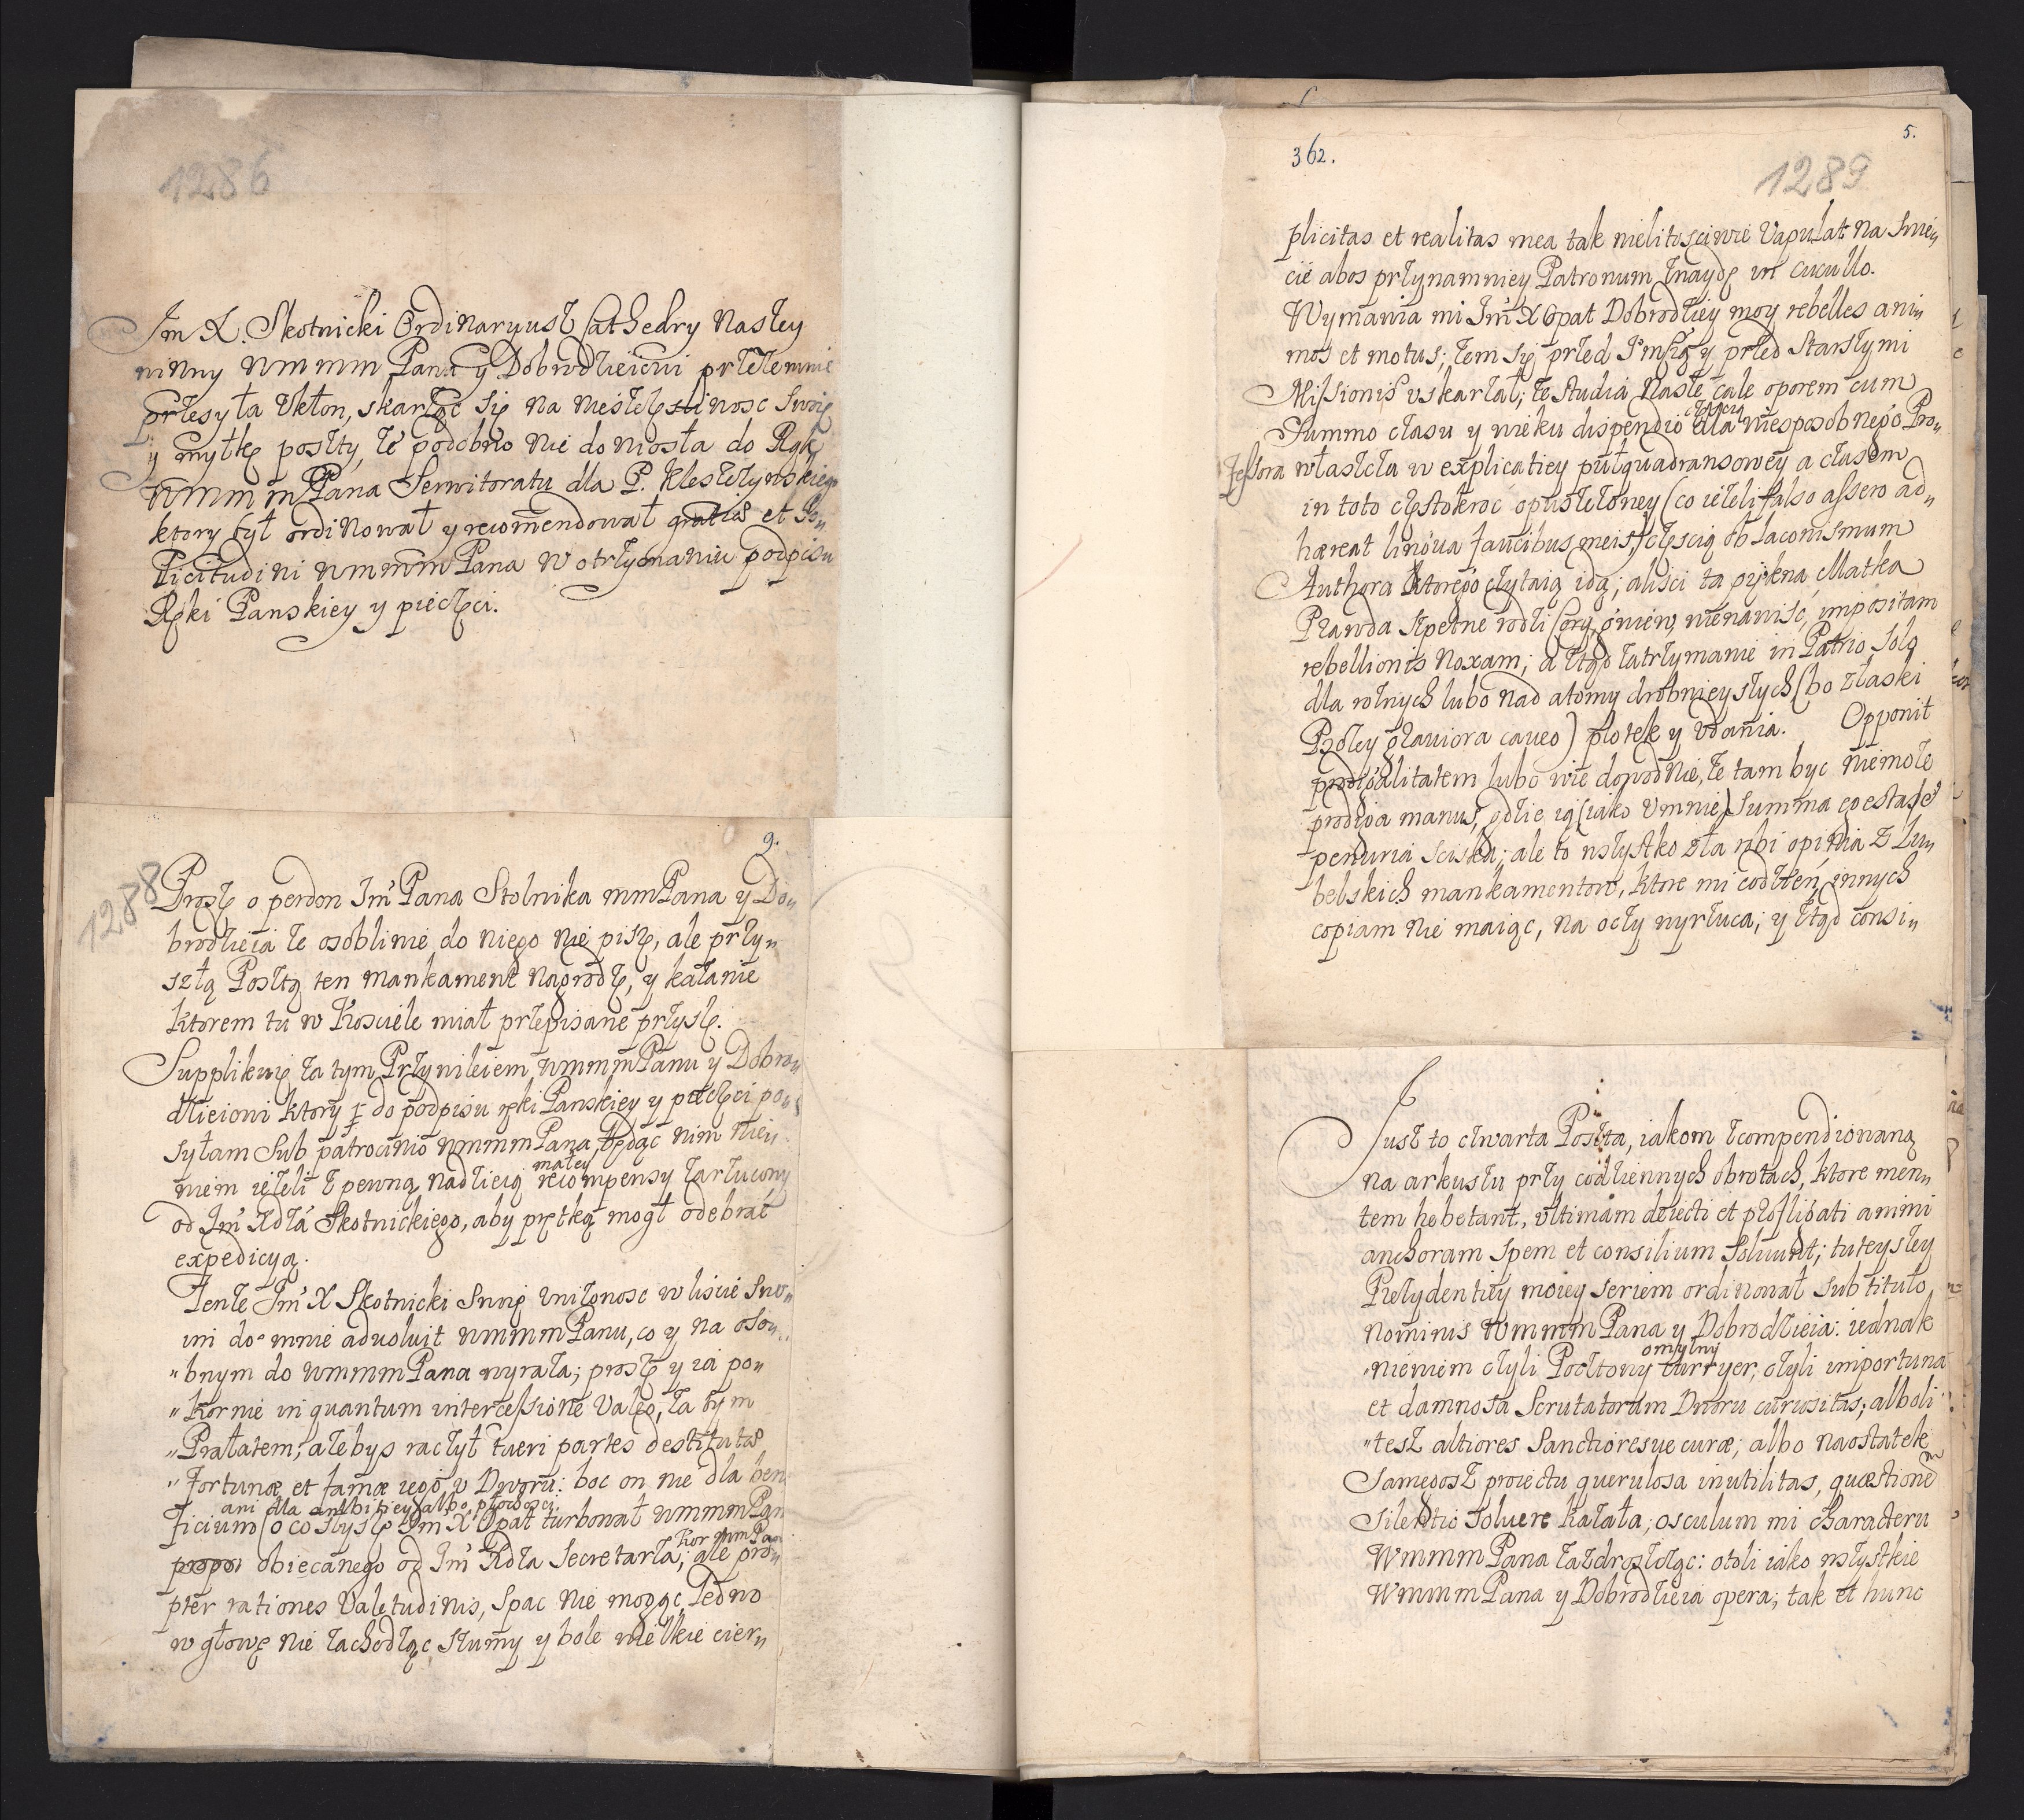 1286
Jm X. Skotnicki Ordinaryusz Cathedry Naszey
winny WMMM Panu y Dobrodzieiowi przezemnie
przesyła Vkłon, skarżąc się na nieszczęsliwosc swoię
y myłkę poszty, że podobno nie doniosła do Rąk
WMMM Pana Serwitoratu dla P. Kleszczynskiego
ktory był ordinował y recomendował gratis et So„
licitudini WMMM Pana w otrzymaniu podpisu
Ręki Panskiey y pieczęci.
9.
1288
Proszę o perdon Jm Pana Stolnika mmPana y Do„
brodzieia że osobliwie do niego nie piszę, ale przy„
szłą Posztą ten mankament nagrodzę, y kazanie
ktorem tu w Kosciele miał przepisane przyszlę.
Supplikuię za tym Przywileiem WMMM Panu y Dobro„
dzieiowi ktory do podpisu ręki Panskiey y pieczęci po„
syłam sub patrocinio WMMM Pana, będąc nim nie„
wiem ieżeli z pewną nadzieią małey recompensy zarzucony
od Jm Xdza Skotnickiego, aby prętką mogł odebrać
expedicyą.
Tenże Jm X Skotnicki swoię vniżonosc w liscie swo„
im do mnie advoluit WMMM Panu, co y na oso„
„bnym do WMMM Pana wyraża; proszę y ia po„
„kornie in quantum intercessione valeo, za tym
„Prałatem, ażebys raczył tueri partes destitutas
„Fortunæ et famæ iego v Dworu: boc on nie dla ben
ani dla ambitiey albo płochosci
ficium (o co słyszę Jm X Opat turbował WMMM Pan
kor mm Pan
propo obiecanego od Jm Xdza Secretarza; ale pro„
pter rationes Valetudinis, spac nie mogąc, Jedno
w głowę nie zachodząc szumy y bole wielkie cier„
362.
5.
1289
plicitas et realitas mea tak nielitosciwie Vapulat na swie„
cie abos przynamniey Patronum znaydę in cucullo.
Wymawia mi Jm X Opat Dobrodziey moy rebelles ani„
mos et motus; żem się przed Jmscią y przed Starszymi
Missionis vskarzał, że studia Nasze cale oporem cum
summo czasu y wieku dispendio częscią dla niesposobnego Pro„
fessora własczta w explicatiey pułquadransowey a czasem
in toto częstokroc opuszczoney (co ieżeli falso assero ad„
hæreat lingua faucibus meis) częscią ob laconismum
Authora ktorego czytaią idą; alisci ta piękna Matka
Prawda szpetne rodzi Cory, gniew, nienawisc, impositam
rebellionis noxam; a ztąd zatrzymanie in Patrio solo
dla rożnych lubo nad atomy drobnieyszych (bo z łaski
Bożey graviora caveo) plotek y vdania. Opponit
prodigalitatem lubo wie dowodnie, że tam byc niemoże
prodiga manus, gdzie ią (iako v mnie) summa egestas et
penuria sciska; ale to wszystko zła vrbi opinia z Lu„
belskich mankamentow, ktore mi codzień innych
copiam nie maiąc, na oczy wyrzuca; y ztąd consi„
Jusz to czwarta Poszta, iakom zcompendiowaną
na arkuszu przy codziennych obrotach, ktore men„
tem hebetant, vltimam deiecti et profligati animi
anchoram spem et consilium solvunt; tuteyszey
Prezydentiey moiey seriem ordinował sub titulo
nominis WMMM Pana y Dobrodzieia: iednak
„niewiem czyli Pocztowy omylny curryer, czyli importuna
et damnosa scrutatorum Dworu curiositas; alboli
„tesz altiores sanctioresve curæ; albo naostatek
samegosz proiectu querulosa inutilitas, quæstionem
silentio solvere kazała, osculum mi characteru
WMMM Pana zazdroszcząc: otoli iako wszystkie
WMMM Pana y Dobrodzieia opera; tak et hunc